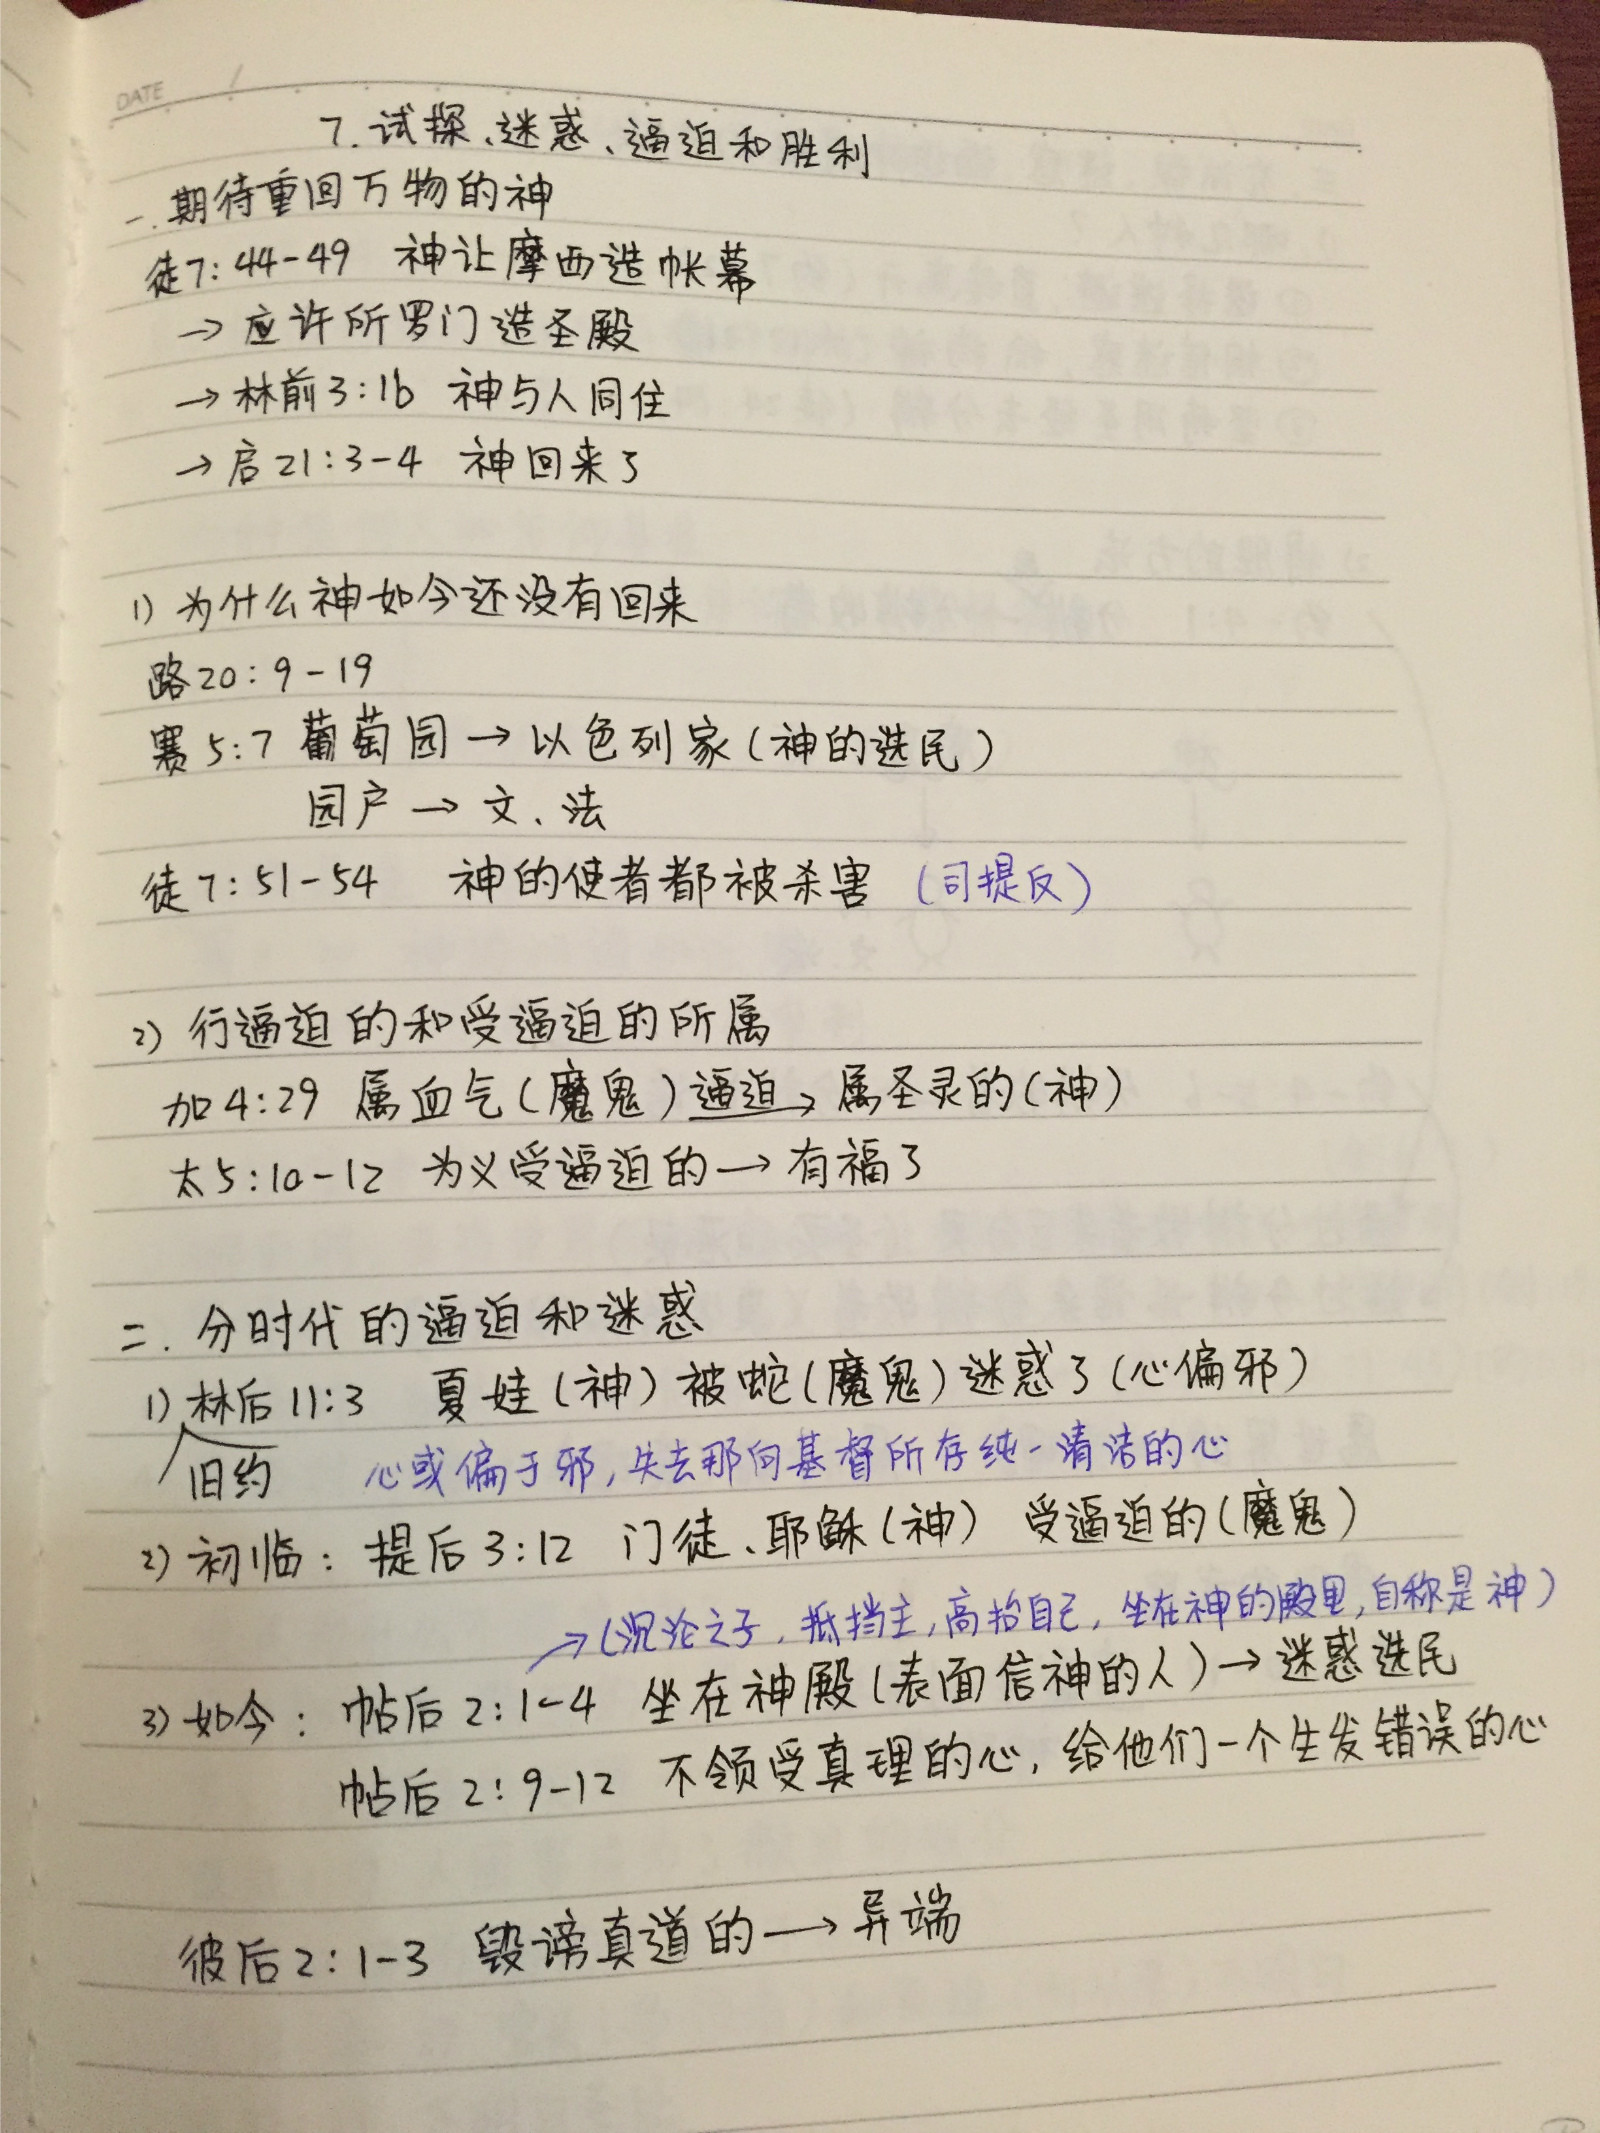 DATE
7. 试探、迷惑、逼迫和胜利
一. 期待重回万物的神
徒7:44-49 神让摩西造帐幕
→ 应许所罗门造圣殿
→ 林前3:16 神与人同住
→ 启21:3-4 神回来了
1) 为什么神如今还没有回来
路20:9-19
赛5:7 葡萄园→以色列家(神的选民)
园户→文、法
徒7:51-54 神的使者都被杀害 (司提反)
2) 行逼迫的和受逼迫的所属
加4:29 属血气(魔鬼)逼迫→属圣灵的(神)
太5:10-12 为义受逼迫的→有福了
二. 分时代的逼迫和迷惑
1) 林后11:3 夏娃(神)被蛇(魔鬼)迷惑了(心偏邪)
旧约 心或偏于邪,失去那向基督所存纯一清洁的心
2) 初临: 提后3:12 门徒、耶稣(神) 受逼迫的(魔鬼)
→(沉沦之子,抵挡主,高抬自己,坐在神的殿里,自称是神)
3) 如今: 帖后2:1-4 坐在神殿(表面信神的人)→迷惑选民
帖后2:9-12 不领受真理的心,给他们一个生发错误的心
彼后2:1-3 毁谤真道的→异端